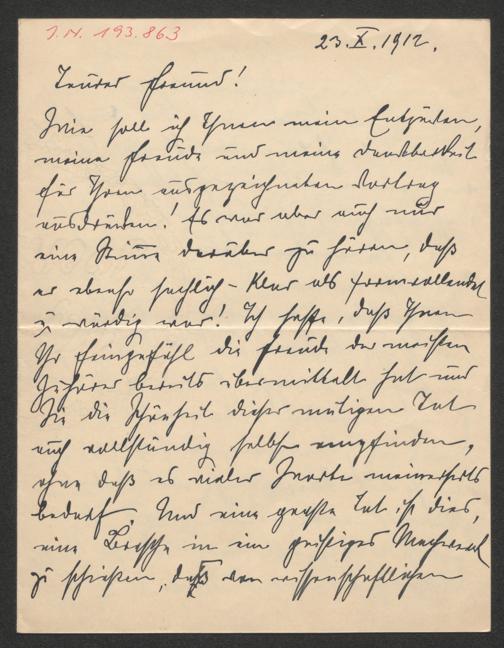 J.N. 193.863
23. X. 1912.
Teurer Freund!
Wie soll ich Ihnen mein Entzücken,
meine Freude und meine Dankbarkeit
für Ihren ausgezeichneten Vortrag
ausdrücken! Es war aber auch nur
eine Stimme darüber zu hören, daß
er ebenso sachlich-klar als formvollendet
u. würdig war! Ich hoffe, daß Ihnen
Ihr Feingefühl die Freude der meisten
Zuhörer bereits übermittelt hat und
Sie die Schönheit dieser mutigen Tat
auch vollständig selbst empfinden,
ohne daß es vieler Worte meinerseits
bedarf. Und eine große Tat ist dies,
eine Bresche in ein geistiges Machwerk
zu schießen, daß von wissenschaftlichen